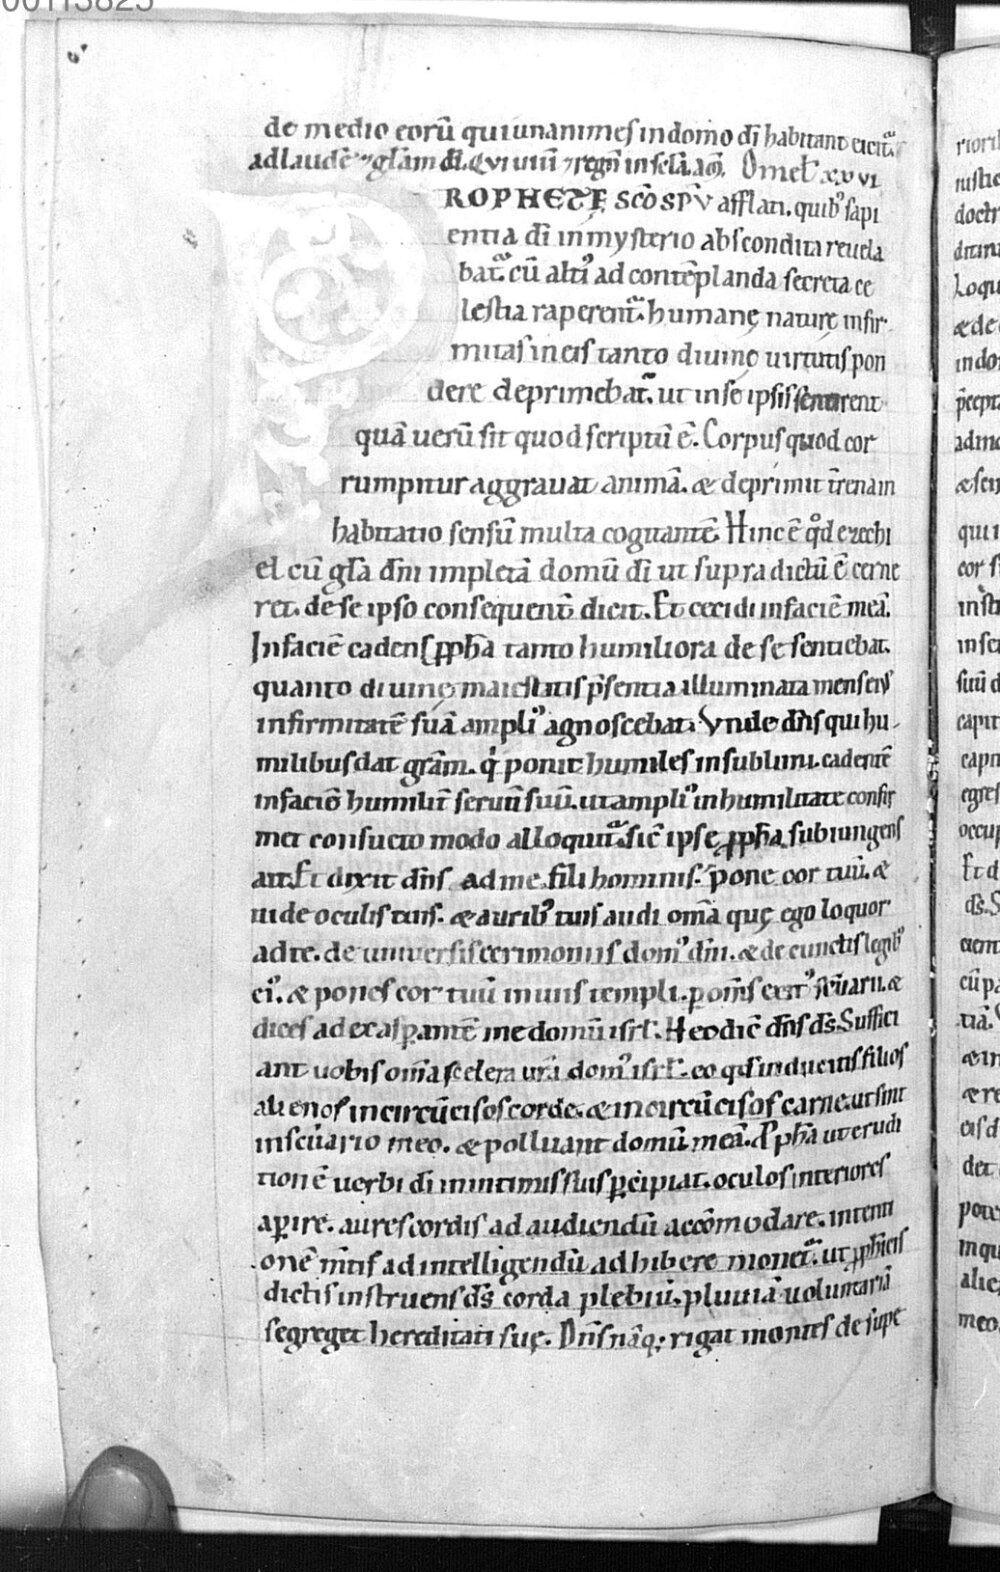 de medio eorū qui unanimes in domo dī habitant eiciūt
ad laudē ⁊ glām dī. Qui uiuit ⁊ regn̄ in sc̄la. am̄. Omel̄ xxvi
ROPHETĘ SCŌ SPV̄ afflati. quibꝰ sapi
entia dī in mysterio abscondita reuela
bat᷑. cū altiꝰ ad contēplanda secreta ce
lestia raperent᷑. humanę naturę infir
mitas in eis tanto diuinę uirtutis pon
dere deprimebat᷑. ut in se ipsis sentirent
quā uerū sit quod scriptū ē. Corpus quod cor
rumpitur aggrauat animā. & deprimit t̄rena in
habitatio sensū multa cogitantē. Hinc ē qd̊ ezechi
el cū glā dn̄i impletā domū dī ut supra dictū ē cerne
ret. de se ipso consequent̄ dicit. Et cecidi in faciē meā.
In faciē cadens ꝓph̄a tanto humiliora de se sentiebat.
quanto diuinę maiestatis p̄sentia illuminata mens eiꝰ
infirmitatē suā ampliꝰ agnoscebat. Vnde dn̄s qui hu
milibus dat grām. q̇ ponit humiles in sublimi. cadentē
in faciē humilit̄ seruū suū. ut ampliꝰ in humilitate confir
met consueto modo alloquit᷑. sic̄ ipse ꝓph̄a subiungens
ait. Et dixit dn̄s ad me. fili hominis. pone cor tuū. &
uide oculis tuis. & auribꝰ tuis audi om̄a quę ego loquor
ad te. de uniuersis cerimoniis domꝰ dn̄i. & de cunctis legibꝰ
eiꝰ. & pones cor tuū in uiis templi. p om̄s exitꝰ sc̄uarii. &
dices ad exasꝑantē me domū isrl̄. Hec dic̄ dn̄s ds̄. Suffici
ant uobis om̄a scelera urā domꝰ isrl̄. eo qd̄ inducitis filios
alienos incircūcisos corde. & incircūcisos carne. ut sint
in sc̄uario meo. & polluant domū meā. Ꝓph̄a ut erudi
tionē uerbi dī in intimis suis ꝑcipiat. oculos interiores
aꝑire. aures cordis ad audiendū accōmodare. intenti
onē m̄tis ad intelligendū adhibere monet᷑. ut ꝓph̄icis
dictis instruens ds̄ corda plebiū. pluuiā uoluntariā
segreget hereditati suę. Dn̄s nāq; rigat montes de supe